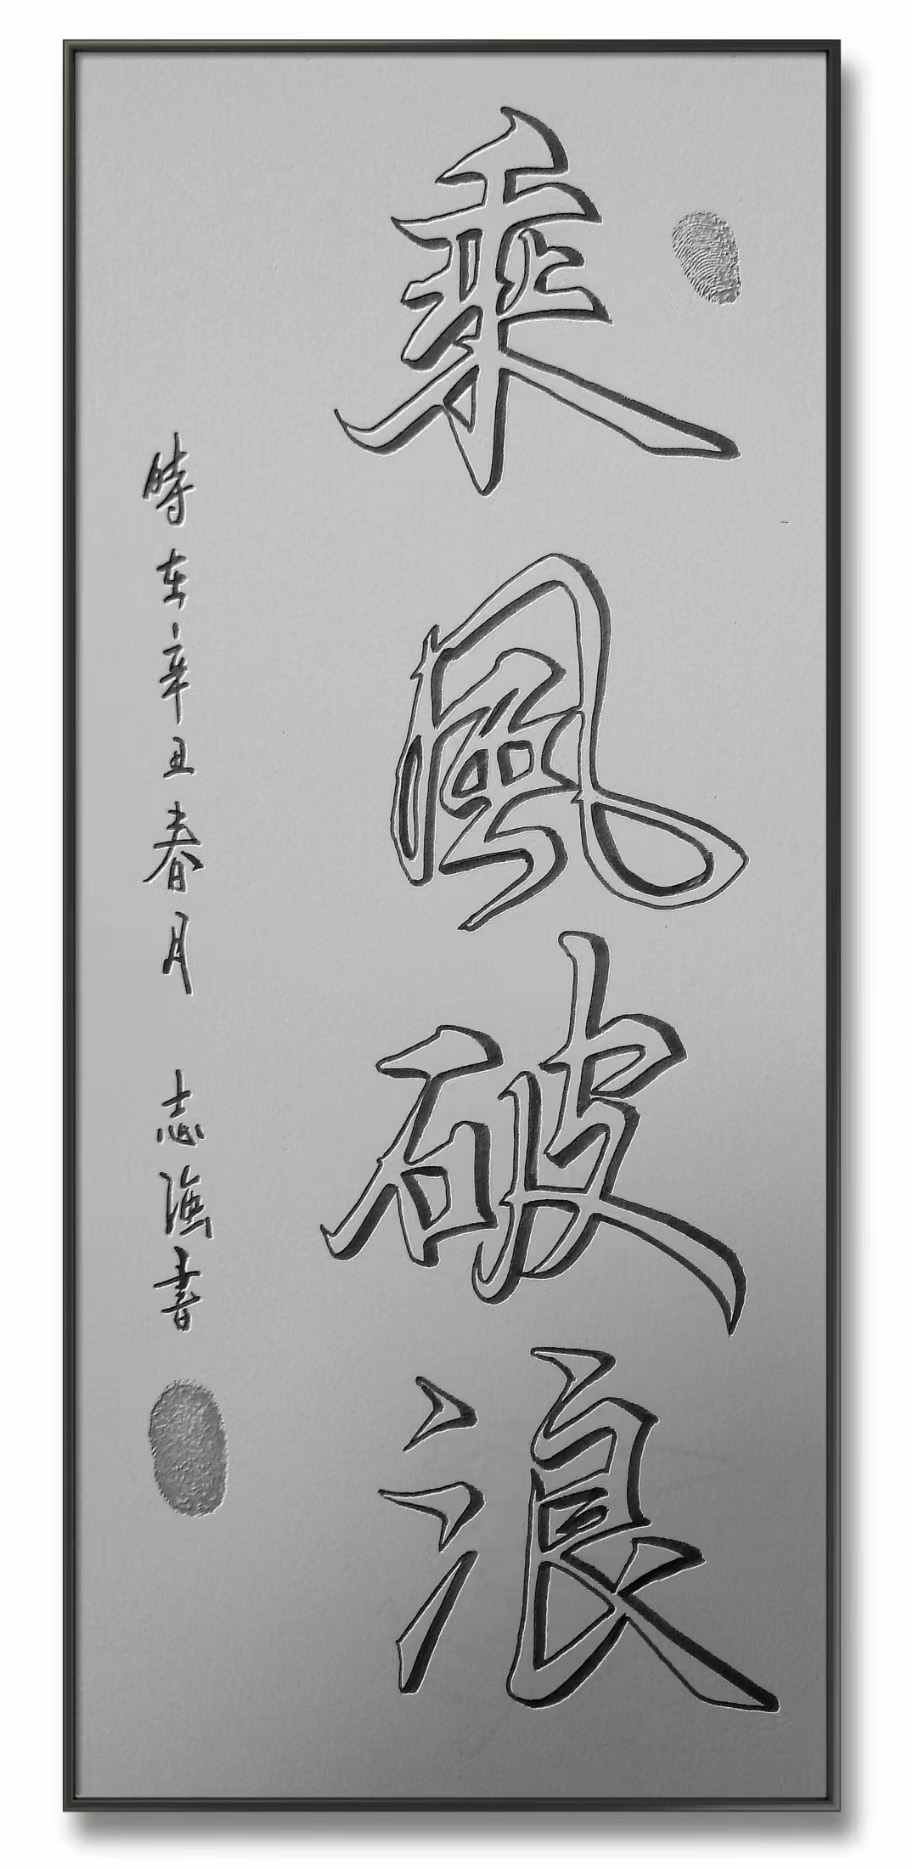 乘風破浪
時在辛丑春月 志海書